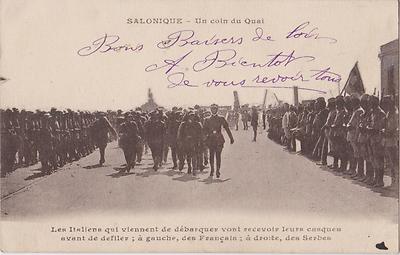 SALONIQUE - Un coin du Quai
Bons Baisers de loin
A Bientot
de vous revoir tous
Les Italiens qui viennent de débarquer vont recevoir leurs casques
avant de défiler ; à gauche, des Français ; à droite, des Serbes